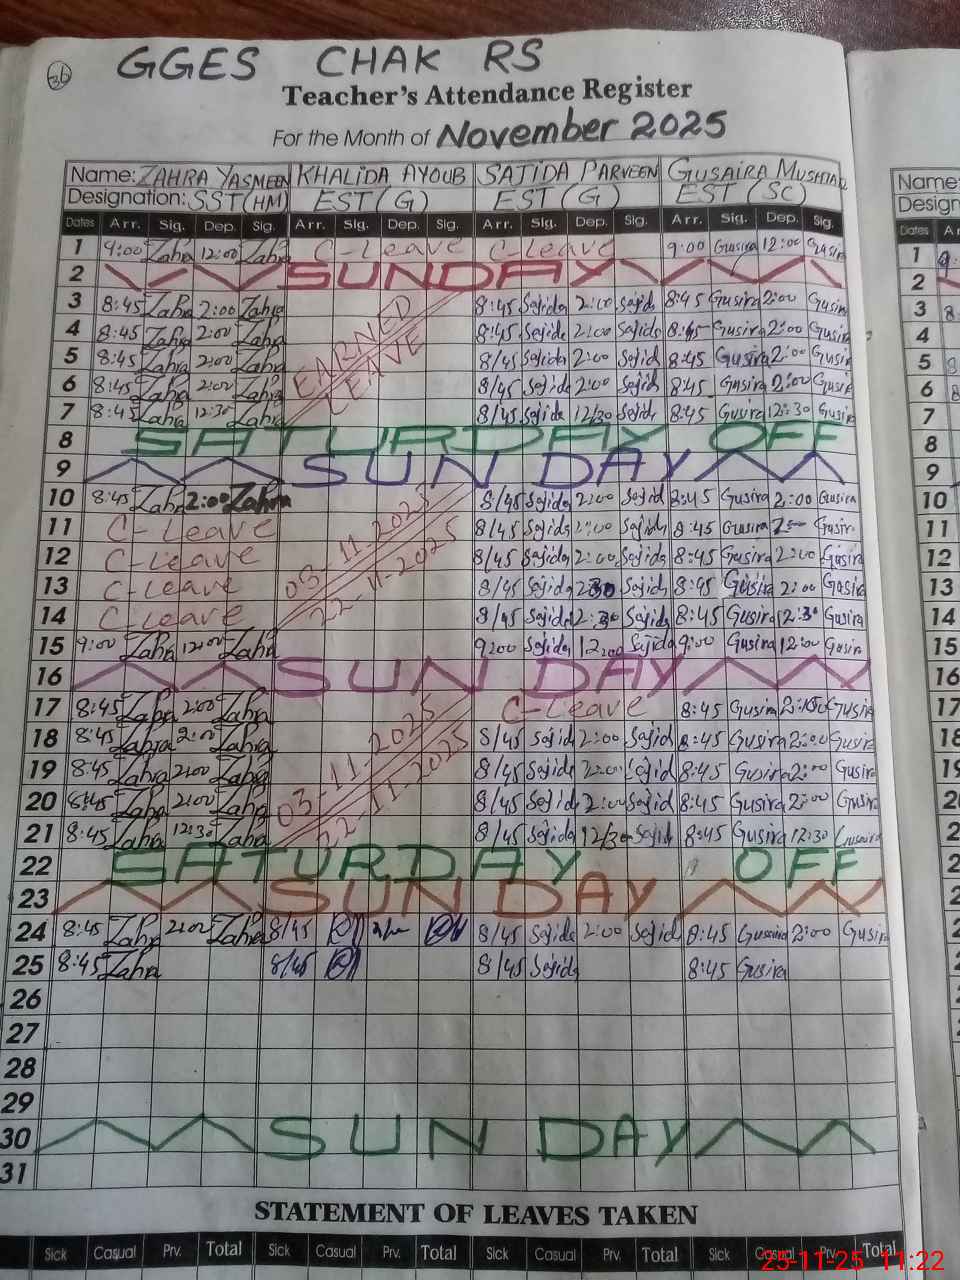 36
GGES CHAK RS
Teacher's Attendance Register
For the Month of November 2025
Name: ZAHRA YASMEEN KHALIDA AYOUB SAJIDA PARVEEN GUSAIRA MUSHTAQ
Designation: SST(HM) EST(G) EST(G) EST(SC)
Dates Arr. Sig. Dep. Sig. Arr. Sig. Dep. Sig. Arr. Sig. Dep. Sig. Arr. Sig. Dep. Sig.
1 9:00 Zahra 12:00 Zahra C-Leave C-Leave 9:00 Gusira 12:00 Gusira
2 SUNDAY
3 8:45 Zahra 2:00 Zahra EARNED 8/45 Sajida 2:00 Sajida 8:45 Gusira 2:00 Gusira
4 8:45 Zahra 2:00 Zahra LEAVE 8:45 Sajida 2:00 Sajida 8:45 Gusira 2:00 Gusira
5 8:45 Zahra 2:00 Zahra 8/45 Sajida 2:00 Sajid 8:45 Gusira 2:00 Gusira
6 8:45 Zahra 2:00 Zahra 8/45 Sajida 2:00 Sajida 8:45 Gusira 2:00 Gusira
7 8:45 Zahra 12:30 Zahra 8/45 Sajida 12/30 Sajida 8:45 Gusira 12:30 Gusira
8 SATURDAY OFF
9 SUNDAY
10 8:45 Zahra 2:00 Zahra 8/45 Sajida 2:00 Sajid 8:45 Gusira 2:00 Gusira
11 C-Leave 03-11-2025 8/45 Sajida 2:00 Sajida 8:45 Gusira Gusira
12 C-Leave 22-11-2025 8/45 Sajida 2:00 Sajida 8:45 Gusira 2:00 Gusira
13 C-Leave 8/45 Sajida Sajida 8:45 Gusira 2:00 Gusira
14 C-Leave 8/45 Sajida Sajida 8:45 Gusira Gusira
15 9:00 Zahra 12:00 Zahra 9:00 Sajida 12:00 Sajida 9:00 Gusira 12:00 Gusira
16 SUNDAY
17 8:45 Zahra 2:00 Zahra C-Leave 8:45 Gusira Gusira
18 8:45 Zahra 2:00 Zahra 03-11-2025 8/45 Sajida 2:00 Sajid 8:45 Gusira 2:00 Gusira
19 8:45 Zahra 2:00 Zahra 22-11-2025 8/45 Sajida 2:00 Sajid 8:45 Gusira 2:00 Gusira
20 8:45 Zahra 2:00 Zahra 8/45 Sajida 2:00 Sajid 8:45 Gusira 2:00 Gusira
21 8:45 Zahra 12:30 Zahra 8/45 Sajida 12/30 Sajid 8:45 Gusira 12:30 Gusaira
22 SATURDAY OFF
23 SUNDAY
24 8:45 Zahra 2:00 Zahra 8/45 8/45 Sajida 2:00 Sajid 8:45 Gusaira 2:00 Gusira
25 8:45 Zahra 8/45 8/45 Sajida 8:45 Gusira
26
27
28
29
30 SUNDAY
31
STATEMENT OF LEAVES TAKEN
Sick Casual Prv. Total Sick Casual Prv. Total Sick Casual Prv. Total Sick Casual Prv. Total
25-11-25 11:22
Name:
Design
Dates
1
2
3
4
5
6
7
8
9
10
11
12
13
14
15
16
17
18
19